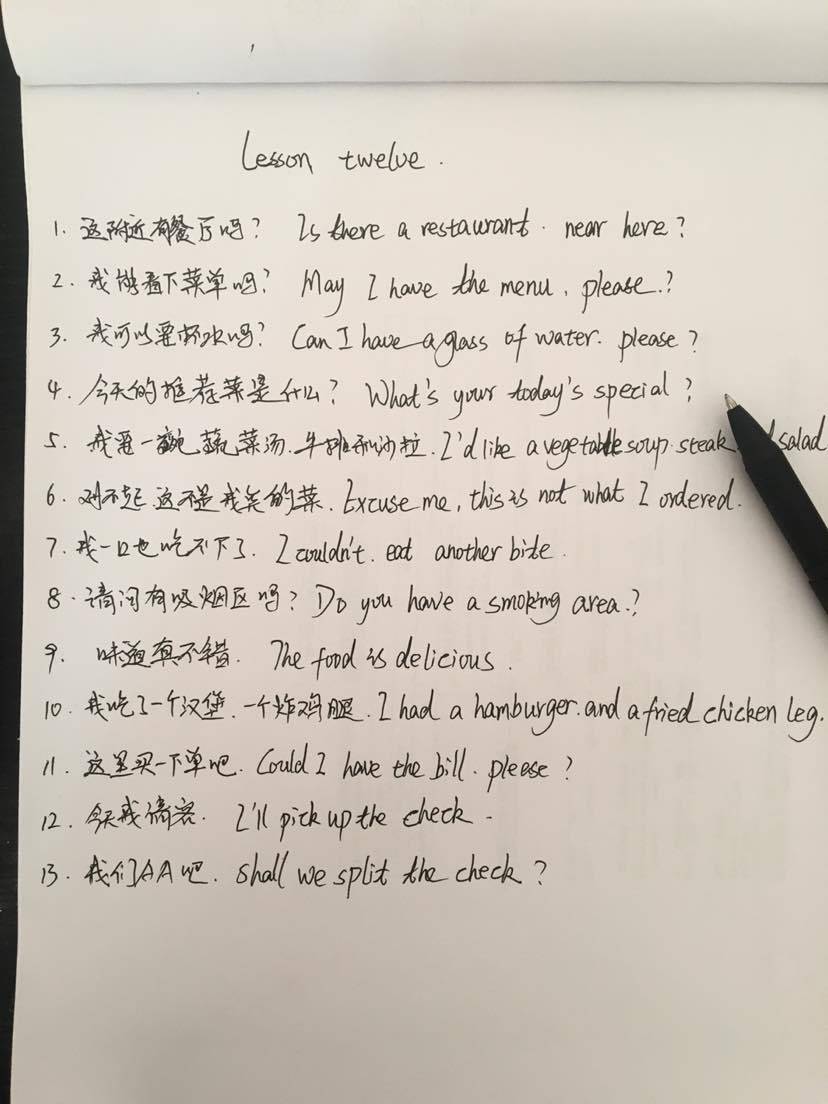 Lesson twelve.
1. 这附近有餐厅吗? Is there a restaurant. near here?
2. 我能看下菜单吗? May I have the menu, please.?
3. 我可以要杯水吗? Can I have a glass of water. please?
4. 今天的推荐菜是什么? What's your today's special?
5. 我要一碗蔬菜汤.牛排和沙拉. I'd like a vegetable soup. steak salad
6. 对不起.这不是我点的菜. Excuse me, this is not what I ordered.
7. 我一口也吃不下了. I couldn't. eat another bite.
8. 请问有吸烟区吗? Do you have a smoking area.?
9. 味道真不错. The food is delicious.
10. 我吃了一个汉堡.一个炸鸡腿. I had a hamburger.and a fried chicken leg.
11. 这里买一下单吧. Could I have the bill. please?
12. 今天我请客. I'll pick up the check.
13. 我们AA吧. Shall we split the check?